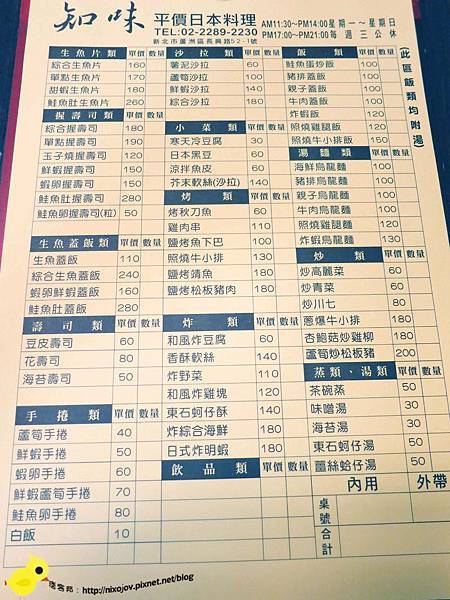 知味 平價日本料理
TEL:02-2289-2230
新北市蘆洲區長興路52-1號
AM11:30~PM14:00星期一~星期日
PM17:00~PM21:00每週三公休
(此區飯類均附湯)
生魚片類 單價 數量
綜合生魚片 160
單點生魚片 170
甜蝦生魚片 180
鮭魚肚生魚片 260
握壽司類 單價 數量
綜合握壽司 180
單點握壽司 190
玉子燒握壽司 120
鮮蝦握壽司 150
蝦卵握壽司 150
鮭魚肚握壽司 280
鮭魚卵握壽司(粒) 50
生魚蓋飯類 單價 數量
生魚蓋飯 110
綜合生魚蓋飯 240
蝦卵鮮蝦蓋飯 160
鮭魚肚蓋飯 280
壽司類 單價 數量
豆皮壽司 60
花壽司 80
海苔壽司 50
手捲類 單價 數量
蘆筍手捲 40
鮮蝦手捲 50
蝦卵手捲 60
鮮蝦蘆筍手捲 70
鮭魚卵手捲 80
白飯 10
沙拉類 單價 數量
薯泥沙拉 100
蘆筍沙拉 100
鮮蝦沙拉 160
綜合沙拉 180
小菜類 單價 數量
寒天冷豆腐 30
日本黑豆 60
涼拌魚皮 60
芥末軟絲(沙拉) 140
烤類 單價 數量
烤秋刀魚 60
雞肉串
鹽烤魚下巴 100
照燒牛小排 130
鹽烤鯖魚 180
鹽烤松板豬肉 180
炸類 單價 數量
和風炸豆腐 60
香酥軟絲 140
炸野菜 110
和風炸雞塊 120
東石蚵仔酥 140
炸綜合海鮮 180
日式炸明蝦 180
飲品類 單價 數量
飯類 單價 數量
鮭魚蛋炒飯 100
豬排蓋飯 100
親子蓋飯 100
牛肉蓋飯 100
炸蝦飯
照燒雞腿飯
照燒牛小排飯 150
湯麵類 單價 數量
海鮮烏龍麵 100
豬排烏龍麵 100
親子烏龍麵 100
牛肉烏龍麵 100
照燒雞腿麵 120
炸蝦烏龍麵 130
炒類 單價 數量
炒高麗菜 60
炒青菜 60
炒川七 80
蔥爆牛小排 180
杏鮑菇炒雞柳 180
蘆筍炒松板豬 200
蒸類、湯類 單價 數量
茶碗蒸 50
味噌湯 30
海苔湯 30
東石蚵仔湯 50
薑絲蛤仔湯 50
內用 外帶
桌號
合計
痞客邦:http://nixojov.pixnet.net/blog